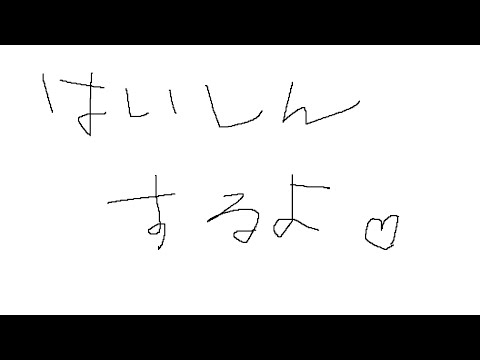 はいしん
するよ♡